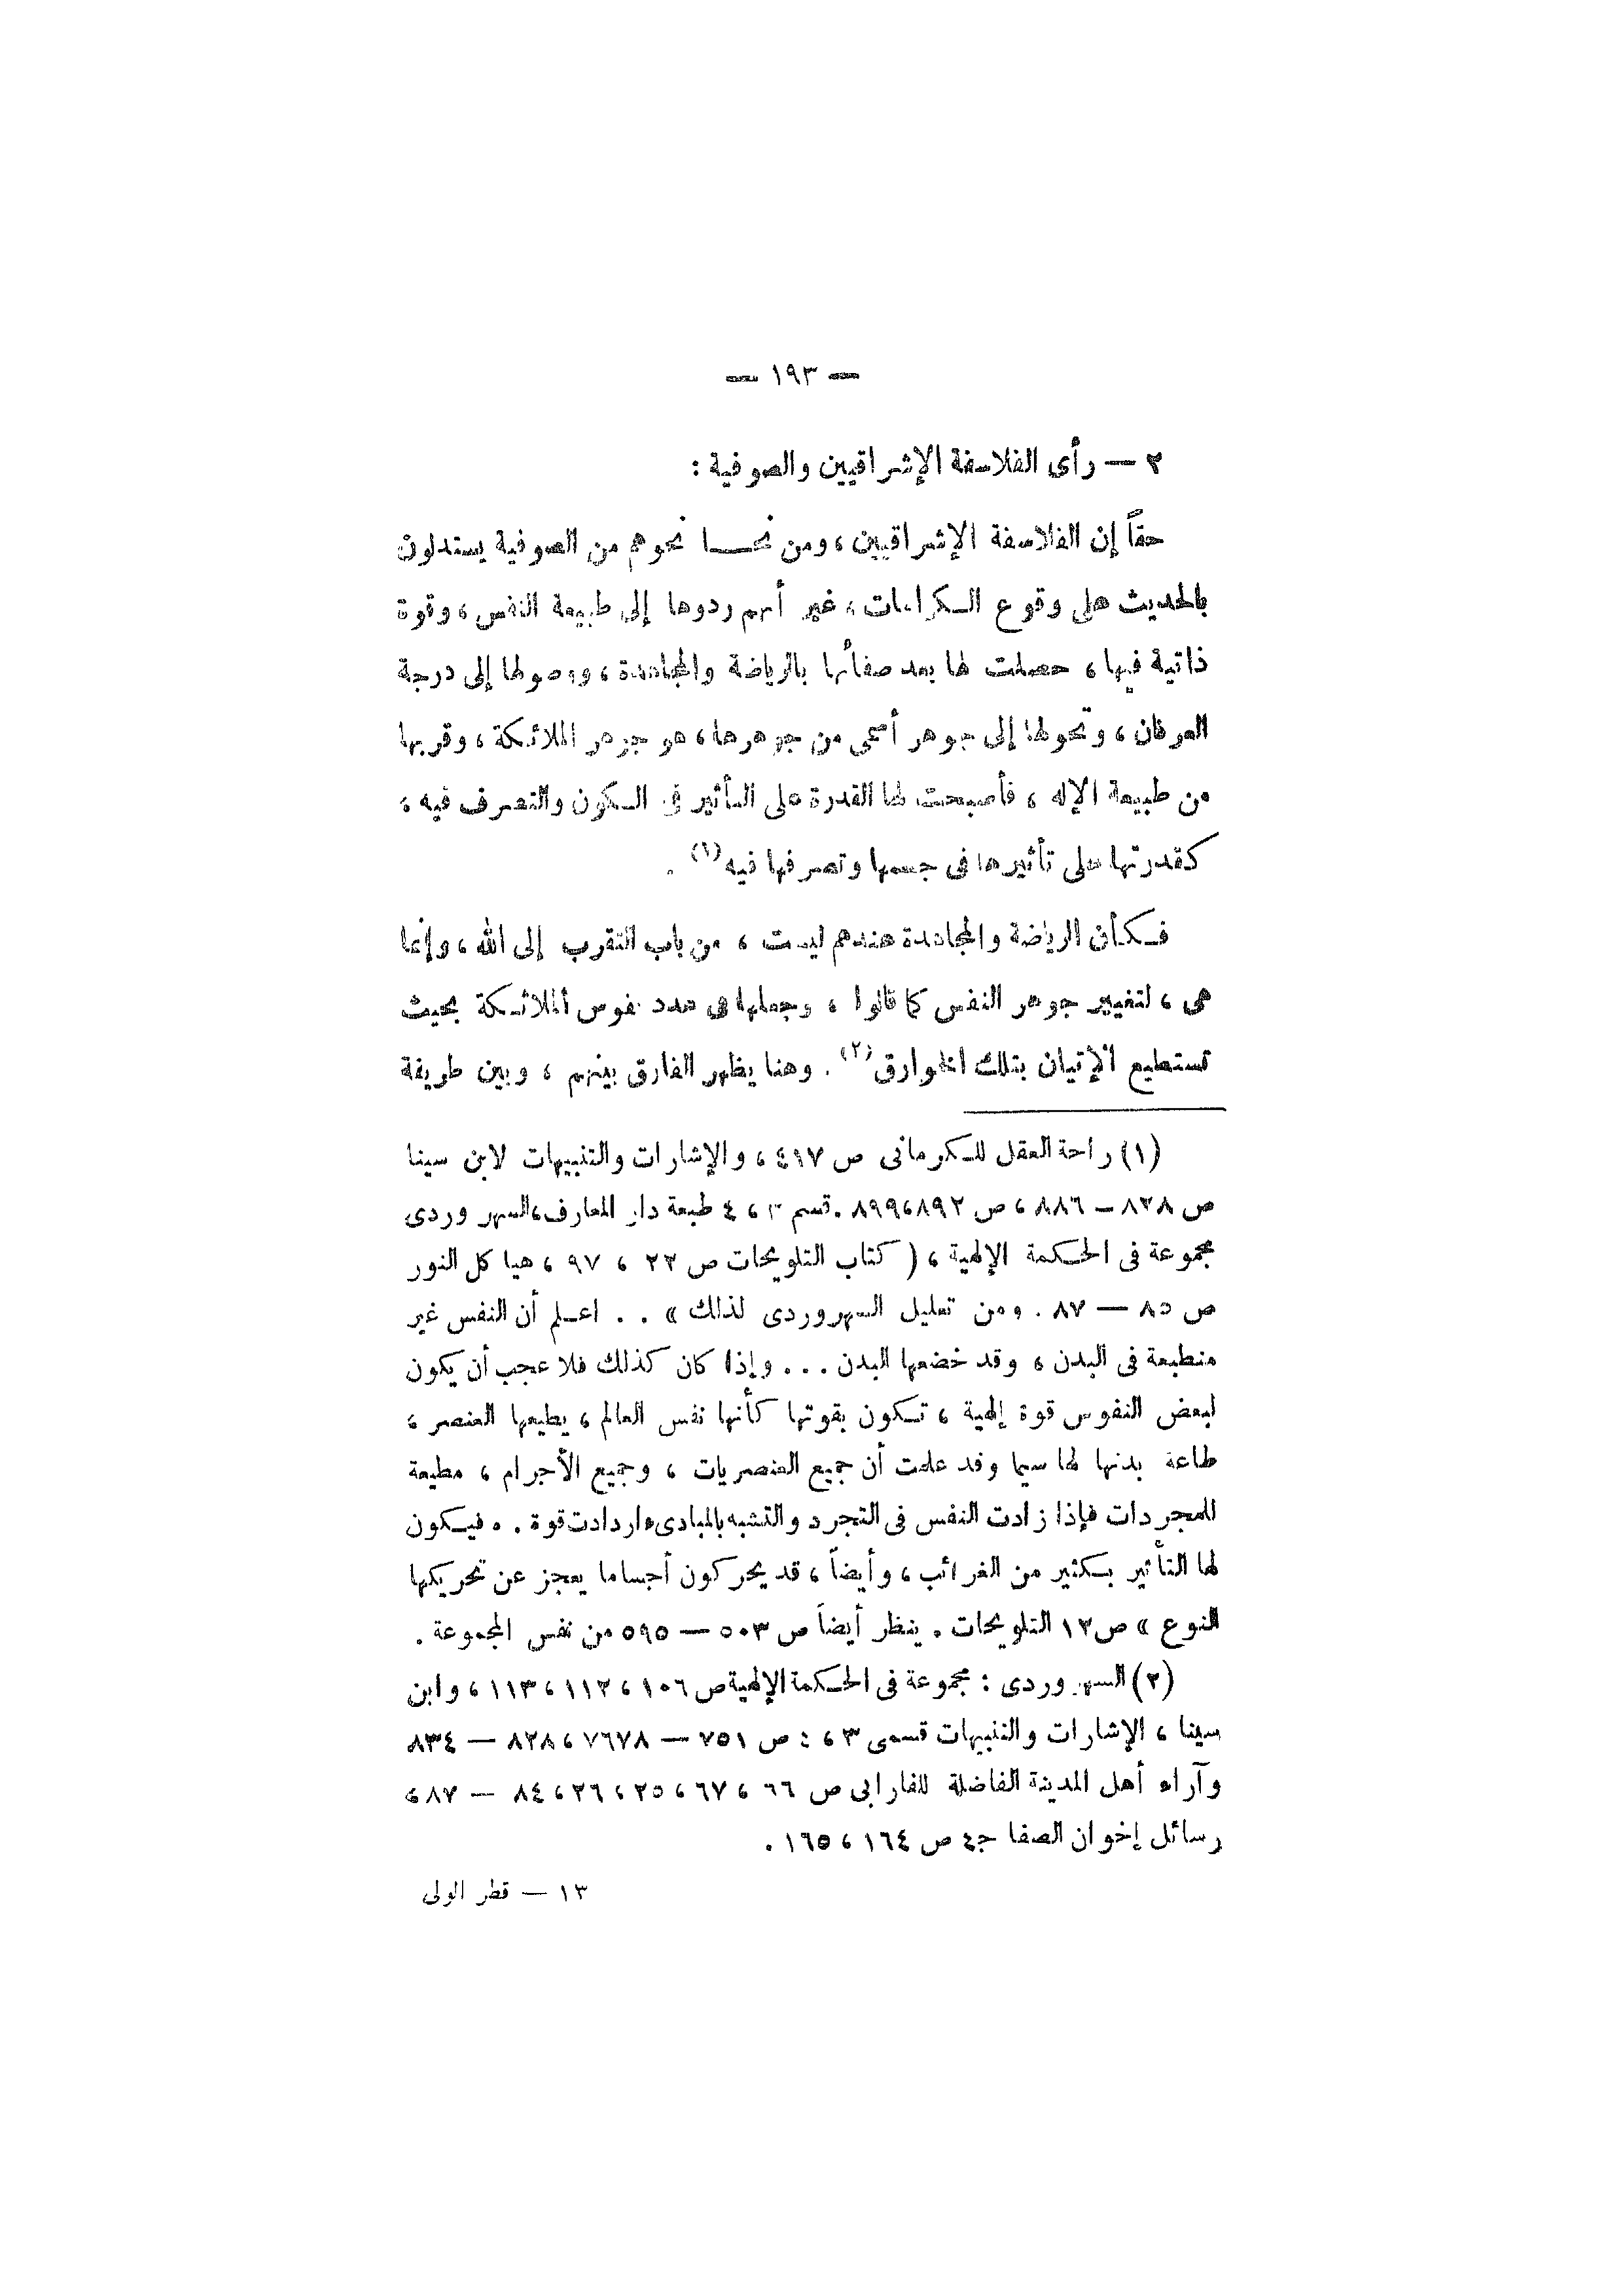 — ١٩٣ —
٢ — رأى الفلاسفة الإشراقيين والصوفية :
حقاً إن الفلاسفة الإشراقيين ، ومن نحا نحوهم من الصوفية يستدلون
بالحديث على وقوع الكرامات ، غير أنهم ردوها إلى طبيعة النفس ، وقوة
ذاتية فيها ، حصلت لها بعد صفائها بالرياضة والمجاهدة ، ووصولها إلى درجة
العرفان ، وتحولها إلى جوهر أسمى من جوهرها ، هو جوهر الملائكة ، وقربها
من طبيعة الإله ، فأصبحت لها القدرة على التأثير في الكون والتصرف فيه ،
كقدرتها على تأثيرها فى جسمها وتصرفها فيه (١) .
فكأن الرياضة والمجاهدة عندهم ليست ، من باب التقرب إلى الله ، وإنما
هى ، لتغيير جوهر النفس كما قالوا ، وجعلها فى عدد نفوس الملائكة بحيث
تستطيع الإتيان بتلك الخوارق (٢) . وهنا يظهر الفارق بينهم ، وبين طريقة
(١) راحة العقل للكرمانى ص ٤١٧ ، والإشارات والتنبيهات لابن سينا
ص ٨٢٨ – ٨٨٦ ، ص ٨٩٢ ، ٨٩٩ . قسم ٣ ، ٤ طبعة دار المعارف ، السهروردى
مجموعة فى الحكمة الإلهية ، ( كتاب التلويحات ص ٢٣ ، ٩٧ ، هياكل النور
ص ٨٥ — ٨٧ . ومن تعليل السهروردى لذلك » . . اعلم أن النفس غير
منطبعة فى البدن ، وقد خضعها البدن . . . وإذا كان كذلك فلا عجب أن يكون
لبعض النفوس قوة إلهية ، تكون بقوتها كأنها نفس العالم ، يطيعها العنصر ،
طاعة بدنها لها سيما وقد علمت أن جميع العنصريات ، وجميع الأجرام ، مطيعة
للمجردات فإذا زادت النفس فى التجرد والتشبه بالمبادىء ازدادت قوة . . فيكون
لها التأثير بكثير من الغرائب ، وأيضاً ، قد يحركون أجساما يعجز عن تحريكها
النوع » ص ١٣ التلويحات . ينظر أيضاً ص ٥٠٣ — ٥٩٥ من نفس المجموعة .
(٢) السهروردى : مجموعة فى الحكمة الإلهية ص ١٠٦ ، ١١٢ ، ١١٣ ، وابن
سينا ، الإشارات والتنبيهات قسمى ٣ ، : ص ٧٥١ — ٧٦٧٨ ، ٨٢٨ — ٨٣٤
وآراء أهل المدينة الفاضلة للفارابى ص ٦٦ ، ٦٧ ، ٢٥ ، ٢٦ ، ٨٤ — ٨٧ ،
رسائل إخوان الصفا ج٤ ص ١٦٤ ، ١٦٥ .
١٣ — قطر الولى